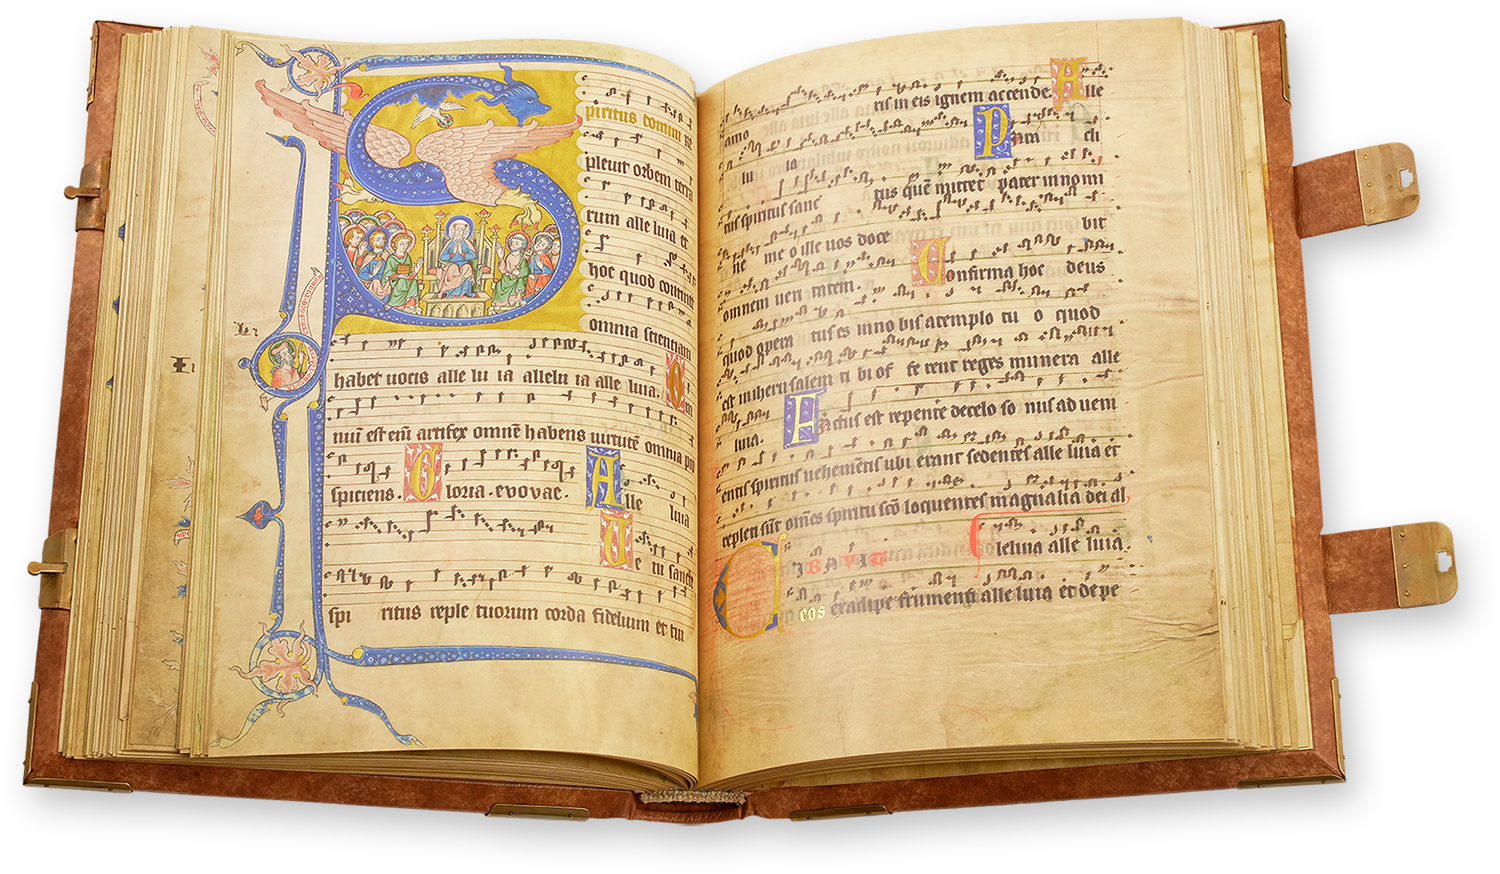 Spiritus domini re
pleuit orbem terra
rum alle luia et
hoc quod continet
omnia scientiam
habet uocis alle lu ia allelu ia alle luia. O m
niū est eiū artifex omnē habens uirtutē omnia pro
spiciens. Gloria. evovae. Alle luia
Ve ni sancte
spi ritus reple tuorum corda fidelium et tui
ris in eis ignem accende Alle
amo
lu ia Para cli
tus spiritus sanc tus quē mittet pater in nomi
ne me o ille uos doce bit
omnem ueri tatem. Confirma hoc deus
quod opera tus es in no bis a templo tu o quod
est in iheru salem ti bi of fe rent reges munera alle
luia. Factus est repente de celo so nus ad ueni
entis spiritus uehementis ubi erant sedentes alle luia et
repleti sūt omēs spiritu scō loquentes magnalia dei al
leluia alle luia.
CIBAVIT
eos ex adipe frumenti alle luia et de pe